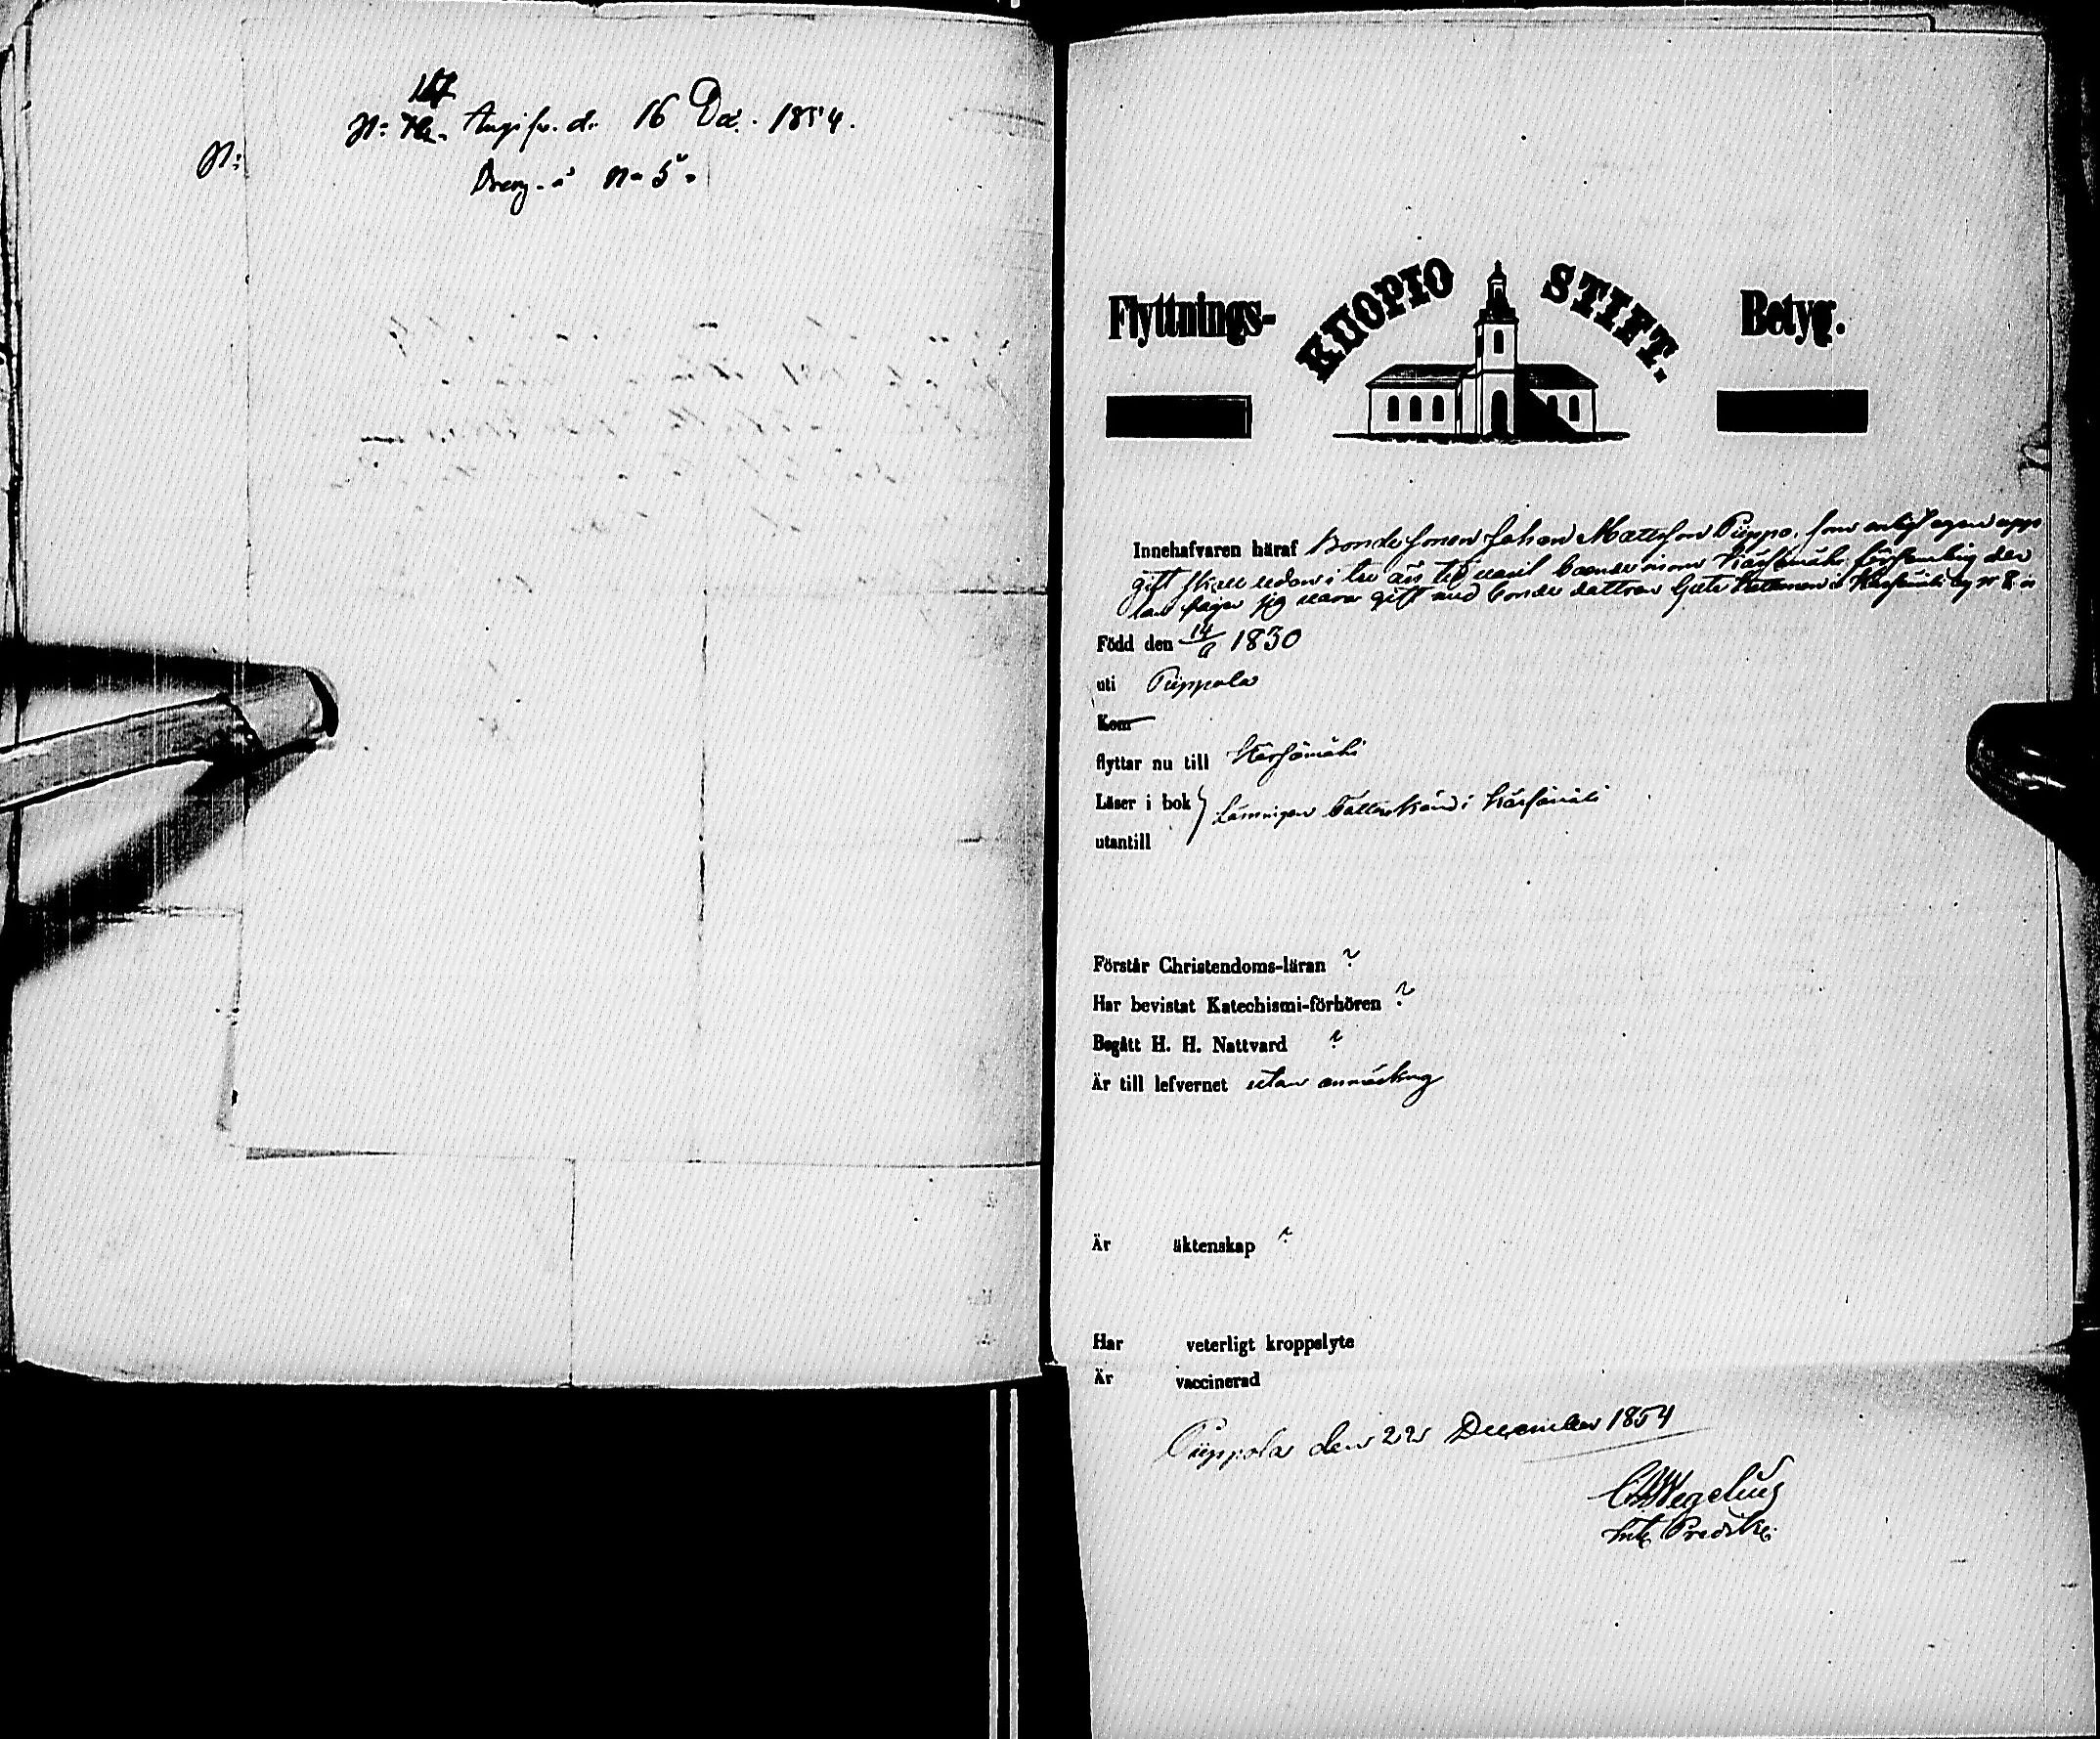 167
N: Angifv. d. 16 Dec. 1854.
N:
Dreng. å N. 5.
Flyttnings- KUOPIO STIFT. Betyg.
Innehafvaren häraf Bondesonen Johan Mattsson Piippo, som enligt egen upp
gift skall redan i tre års tid varit boende inom Kärsämäki församling der
han säger sig vara gift med bonde dottren i Kärsämäki by N 8
Född den 14/6 1830
uti Piippola
Kom
flyttar nu till Kärsämäki
Läser i bok
utantill
Lärer vara bättre känd i Kärsämäki
Förstår Christendoms-läran ?
Har bevistat Katechismi-förhören ?
Begått H. H. Nattvard ?
Är till lefvernet utan anmärkning
Är äktenskap ?
Har veterligt kroppslyte
Är vaccinerad
Piippola den 22 December 1854
Wegelius
Predik.